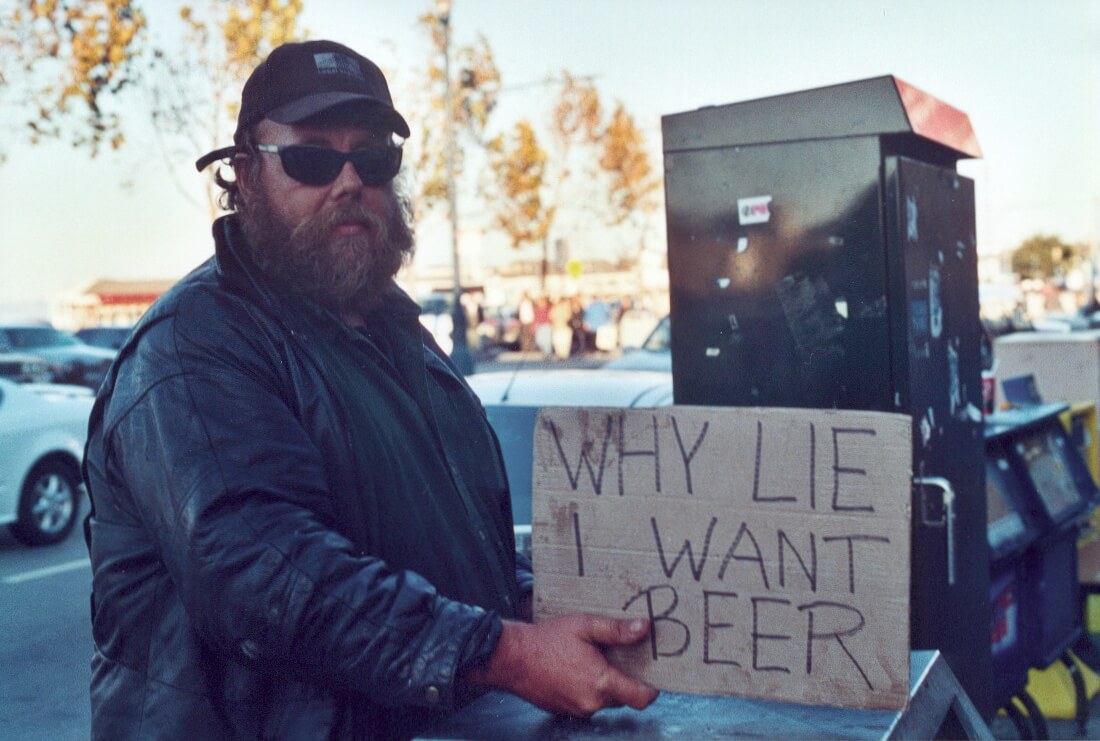 WHY LIE
I WANT
BEER